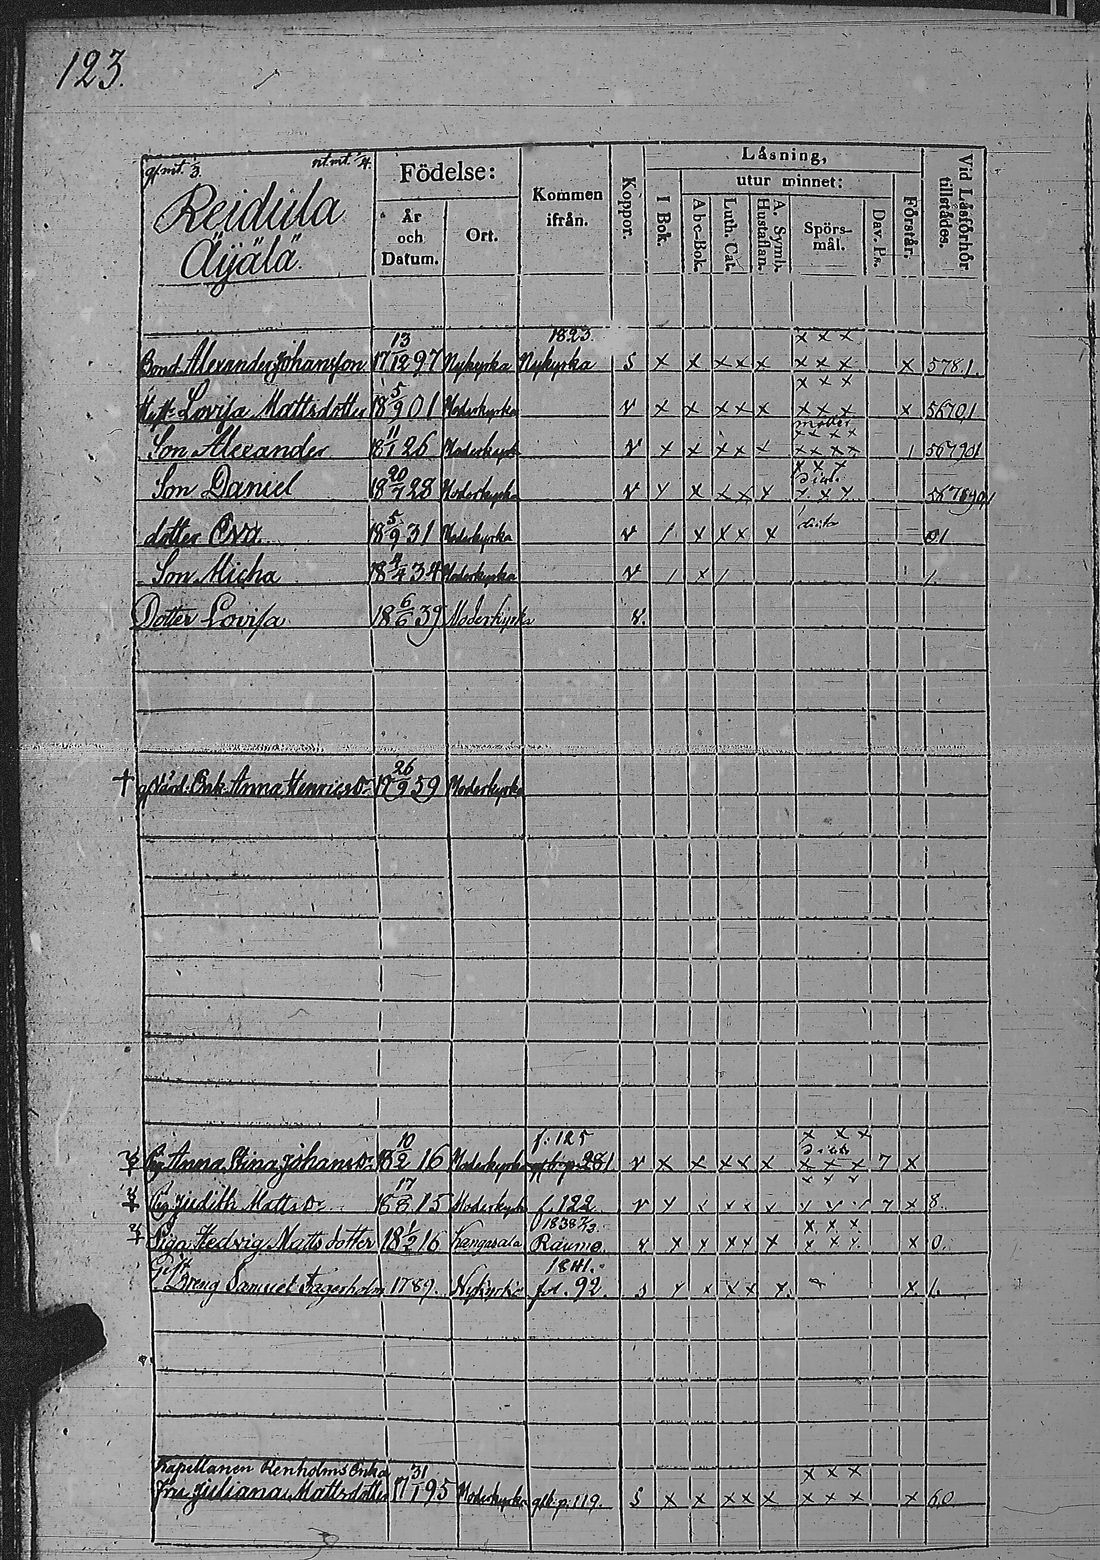 123.
gl. mt. 3. nt. mt. 4.
Reidula
Äyälä.
Födelse:
År och Datum.
Ort.
Kommen ifrån.
Koppor.
Läsning,
I Bok.
utur minnet:
Abc-Bok.
Luth. Cat.
A. Symb. Hustaflan.
Spörs-mål.
Dav. Ps.
Förstår.
Vid Läsförhör tillstädes.
1823. x x x
Bond. Alexander Johansson 17 13/12 97 Nykyrka Nykyrka S x x x x x x x x x 5781.
x x x
Lovisa Mattsdotter 18 5/9 01 Moderkyrka v x x x x x x x x x 56701
x x x x
Son Alexander 18 11/1 26 Moderkyrka v x x x x x x x x x 1 567901
x x x
Son Daniel 18 20/7 28 Moderkyrka v x x x x x x x x
dotter Eva 18 5/9 31 Moderkyrka v / x x x x 01
Son Micha 18 4/4 34 Moderkyrka v / x / 1
Dotter Lovisa 18 6/6 39 Moderkyrka v.
† Enk. Anna Henricsdr 17 26/9 59 Moderkyrka
f. 125 x x x
Pig. Anna Stina Johansdr 18 10/2 16 Moderkyrka 281 v x x x x x x x x 7 x
x x x
Pig. Judith Mattsdr 18 17/8 15 Moderkyrka f. 122 v x x x x x v v v 7 x 8.
1838 x x x
Piga Hedvig Matts dotter 18 1/2 16 Kangasala Raumo v x x x x x x x x x 0.
1841.
Gift Dreng Samuel Fagerholm 1789. Nykyrko fol. 92. s x x x x x. x 1.
Kapellanen Renholms Enka x x x
fru Juliana Mattsdotter 17 31/1 95 Moderkyrka glb. p. 119. S x x x x x x x x x 60